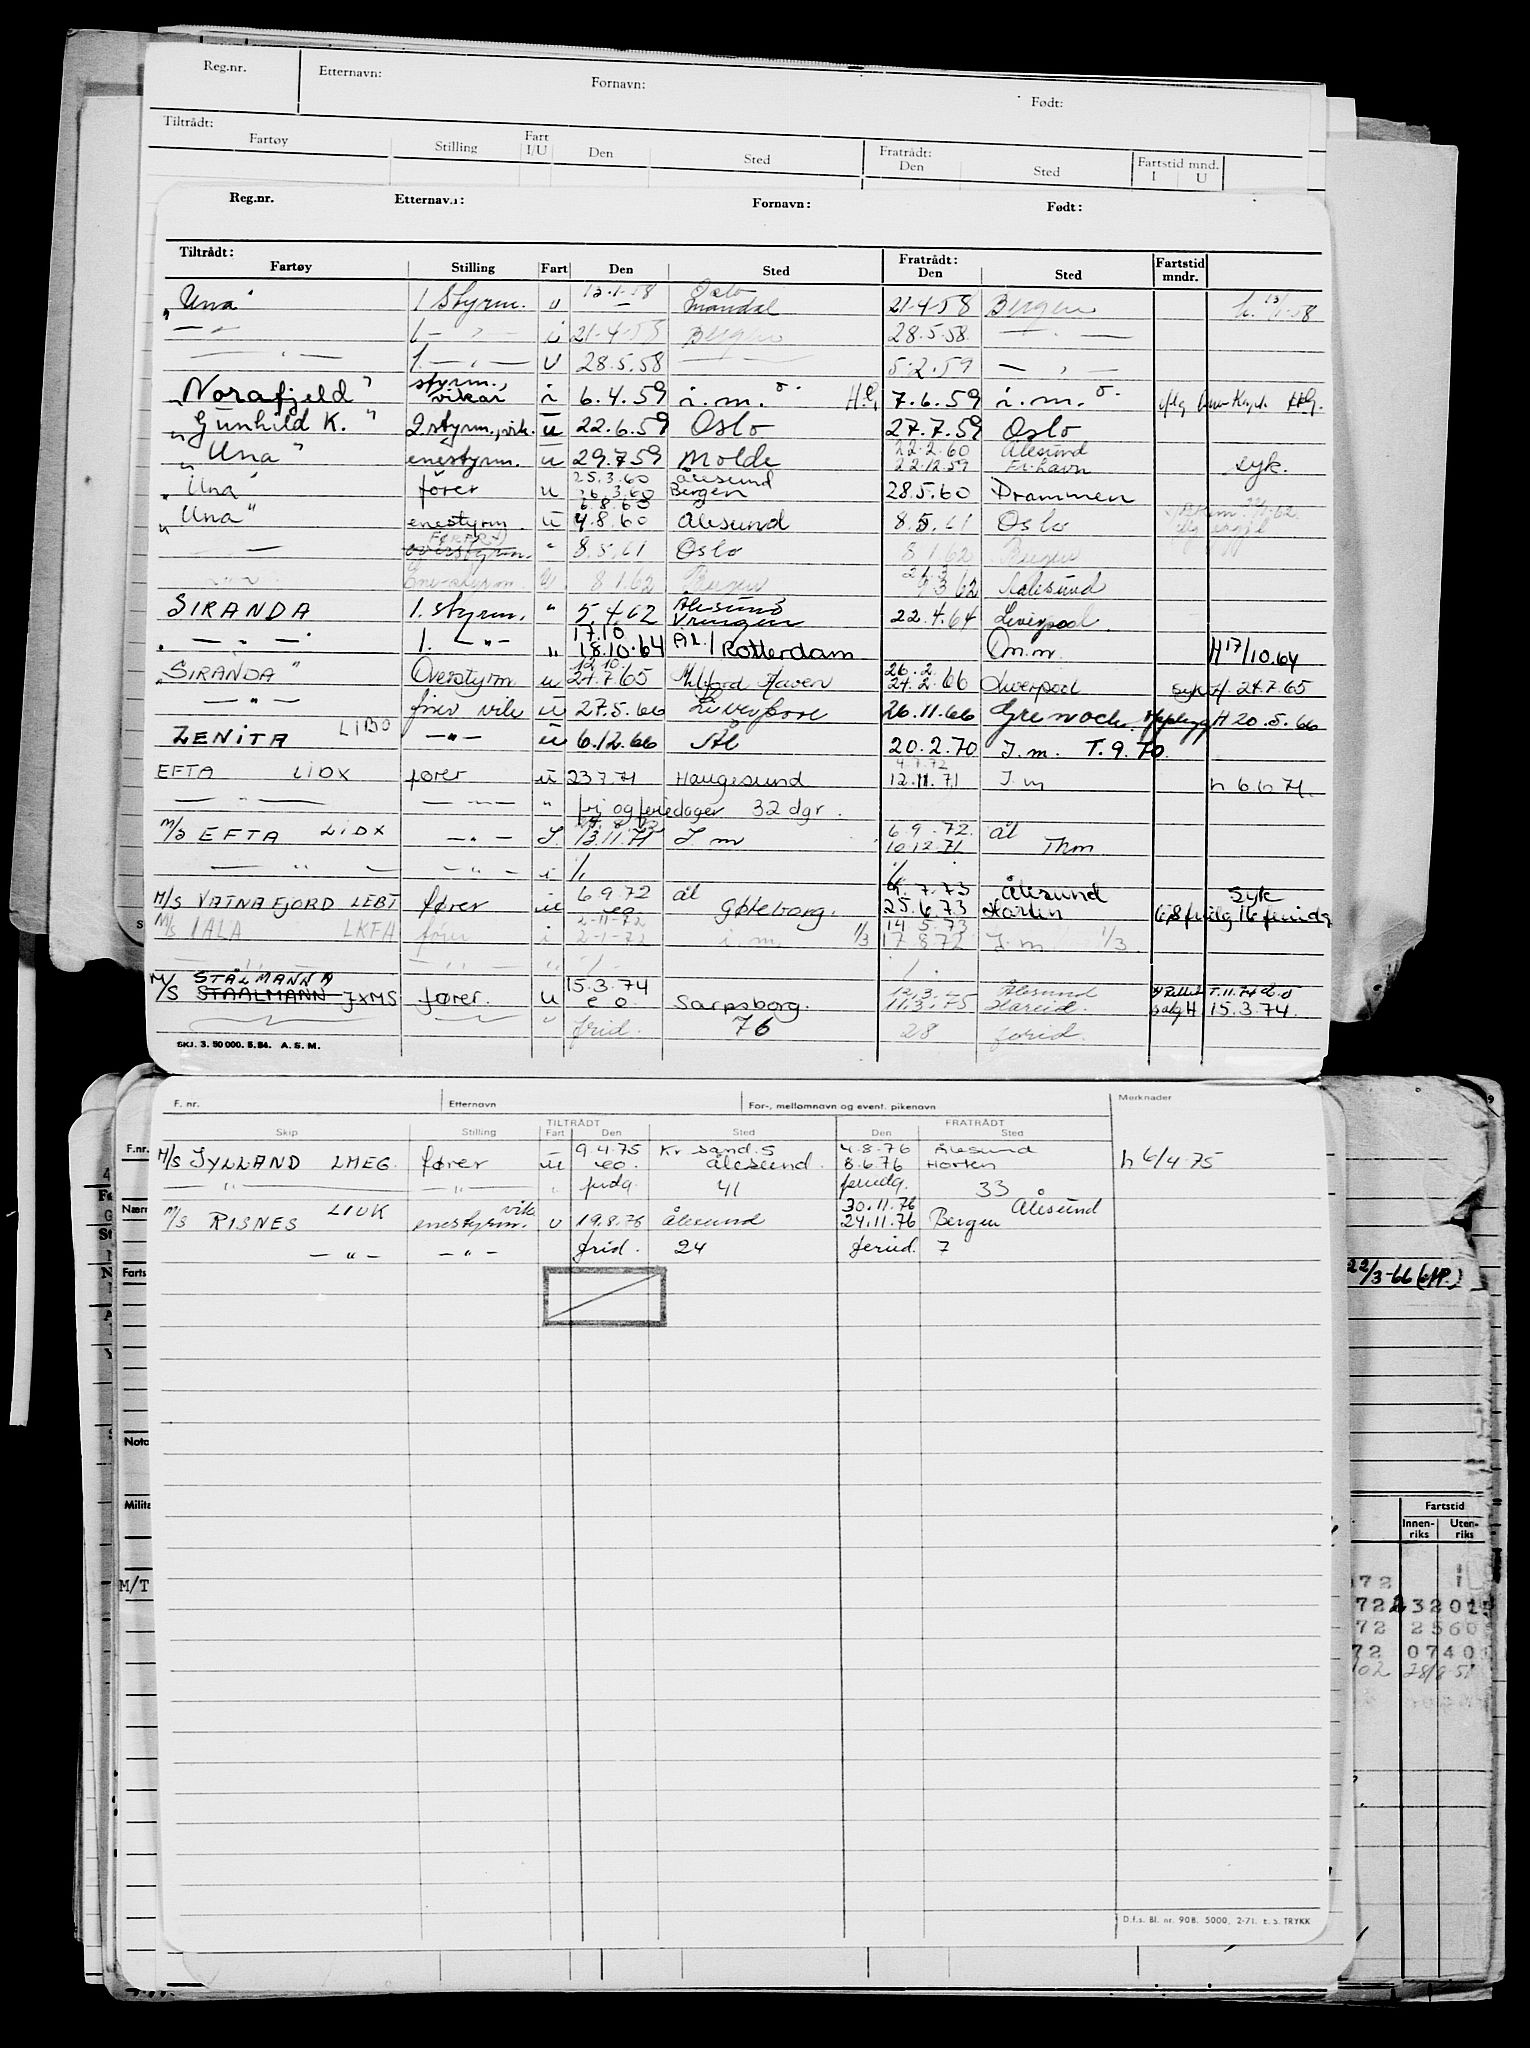 Reg.nr. Etternavn: Fornavn: Født:
Tiltrådt: Fratrådt:
Fartøy Stilling Fart I/U Den Sted Den Sted Fartstid mnd. I U
Reg.nr. Etternavn: Fornavn: Født:
Tiltrådt: Fratrådt: Fartstid
Fartøy Stilling Fart Den Sted Den Sted mndr.
13.1.58 Oslo
"Una" 1 Styrm. u — Mandal 21-4-58 Bergen h. 13/1-58
— " — 1 — " — i 21-4-58 Bergen 28.5.58 — " —
— " — 1. — " — U 28.5.58 — 5.2.59 — " —
"Norafjeld" styrm., vikar i 6.4.59 i.m. H.G. 7.6.59 i.m.
"Gunhild K." 2 styrm., vik. u 22.6.59 Oslo 27.7.59 Oslo
22.2.60 Ålesund
"Una" enestyrm. u 29.7.59 Molde 22.12.59 Fr.havn syk.
25.3.60 Ålesund
"Una" fører u 26.3.60 Bergen 28.5.60 Drammen
6.8.60
"Una" enestyrm. u 4.8.60 Ålesund 8.5.61 Oslo
— — overstyrm. " 8.5.61 Oslo 8.1.62 Bergen
— " — Ene-styrm. U. 8.1.62 Bergen 9.3.62 Aalesund
SIRANDA 1. styrm. " 5.4.62 Ålesund 22.4.64 Liverpool.
17.10
" — " — " 1. — " — " 18.10.64 Ål./Rotterdam Om.m. H 17/10.64
12.10. 26.2.
"SIRANDA" Overstyrm. u 24.7.65 Milford Haven 24.2.66 Liverpool syk H. 24.7.65
— " — fører vik u 27.5.66 Liverpool 26.11.66 Grenock. opplegg H 20.5.66
ZENITA LIBO — " — u 6.12.66 Ål 20.2.70 I.m. T.9.70.
4.7.72
EFTA LIDX fører u 23.7.71 Haugesund 12.11.71 I.m h 6.6.71.
— " — — " — " fri og feriedager 32 dgr.
6.9.72. ål
M/S EFTA LIDX — " — I. 13.11.71 I.m 10.12.71 Thm
— " — — " — i /. /.
6.9.72 ål 4.7.73 Ålesund syk
M/S VATNAFJORD LEBT fører u eo Gøteborg. 25.6.73 Horten
2-11-72 14.5.73
M/S IALA LKFA fører i 2-1-72 i.m. 1/3 17.8.72 I.m 1/3
— " — — " — " /. /.
STÅLMANN A 15.3.74 12.3.75 Ålesund
M/S STAALMANN JXMS fører. u e o Sarpsborg. 11.3.75 Hareid. salg H 15.3.74.
" frid. 76 28 ferid.
SKJ. 3. 50 000. 5.54. A. S. M.
F. nr. Etternavn For-, mellomnavn og event. pikenavn Merknader
TILTRÅDT FRATRÅDT
Skip Stilling Fart Den Sted Den Sted
9.4.75 Kr sand. S 4.8.76 Ålesund
M/S JYLLAND LMEG. fører u eo. Ålesund. 8.6.76 Horten h 6/4-75
— " — — " — " frida. 41 feridg. 33
LIUK vik 30.11.76 Ålesund
M/S RISNES enestyrm. u 19.8.76 Ålesund 24.11.76 Bergen
— " — — " — frid. 24 ferid. 7
D.f.s. Bl. nr. 90B. 5000, 2-71. E. S. TRYKK
F.nr.
Farts
Nota
M/T
22/3-66
Fartstid
Innen-riks Uten-riks